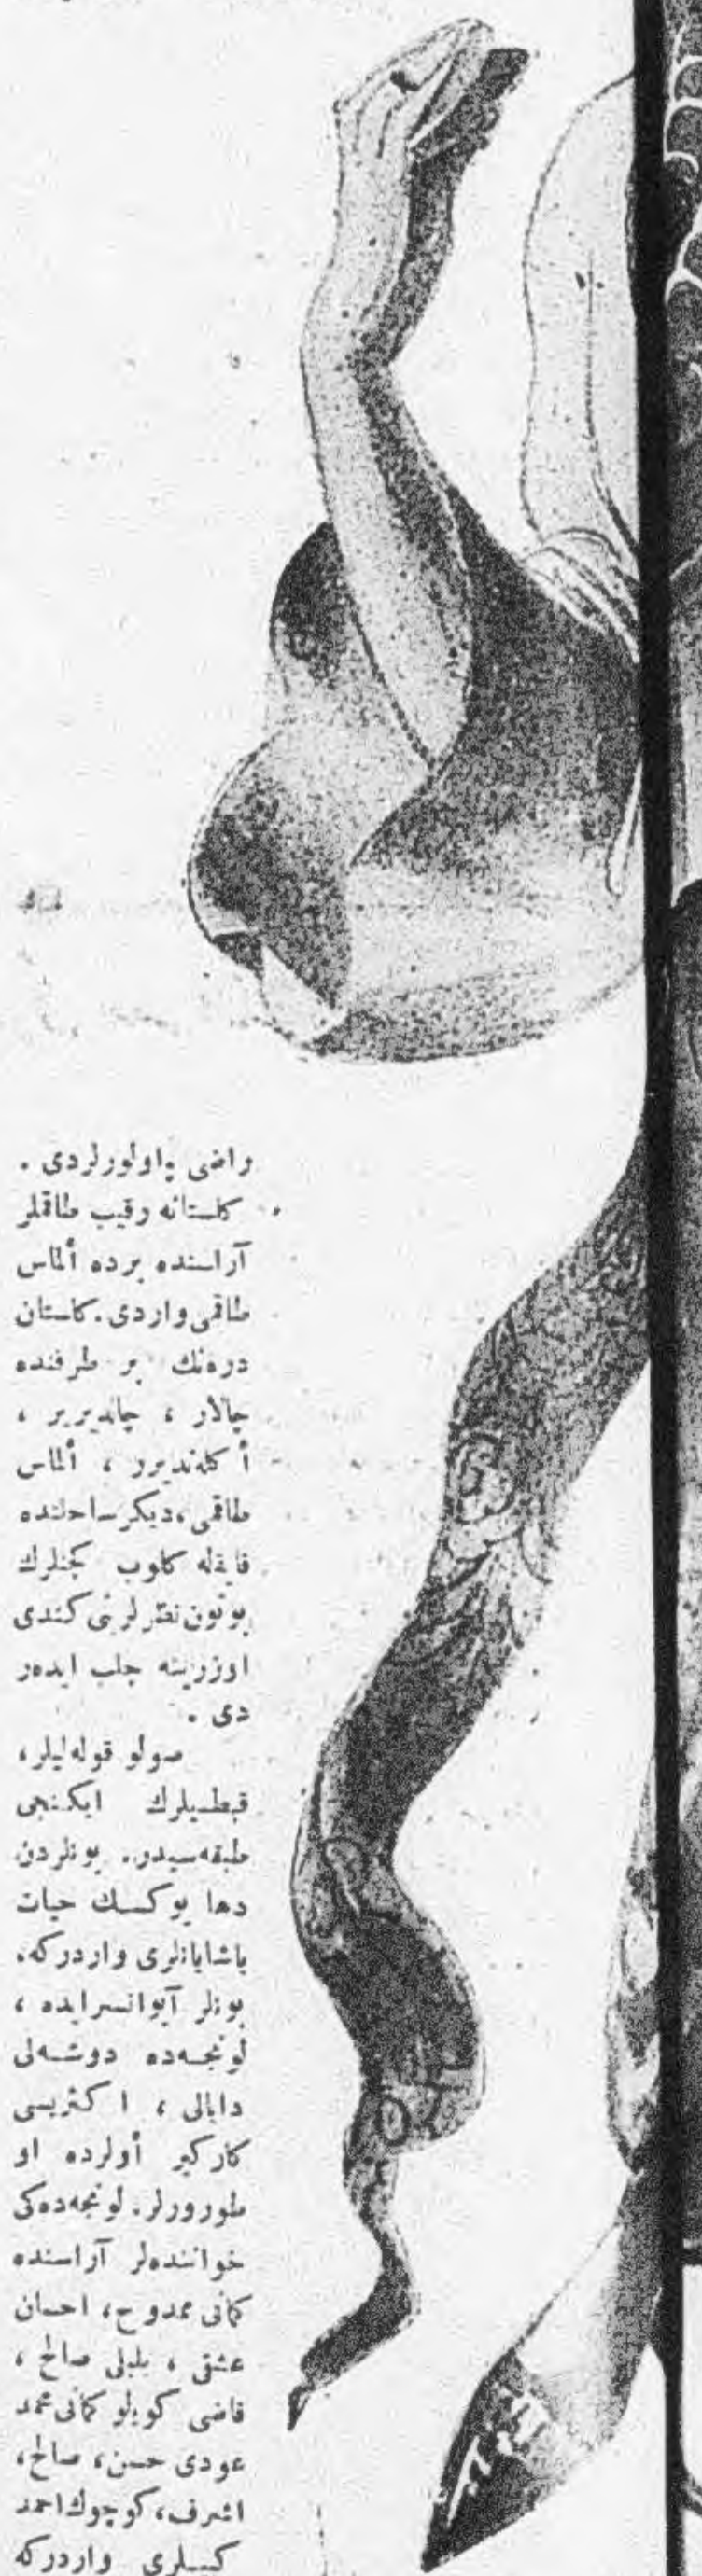 راضی اولورلردی .
کلستانه رقیب طاقملر
آراسنده برده ألماس
طاقمی واردی. کلستان
دره‌نك بر طرفنده
چالار ، چالدیریر ،
أ کلندیرر ، ألماس
طاقمی ، دیکر ساحلنده
قایقله کلوب کچنلرك
بوتون نظرلرینی کندی
اوزرینه جلب ایدەر
دی .
صولو قوله‌لیلر ،
قبطیلرك ایکنجی
طبقه‌سیدر . بونلردن
دها یوکسك حیات
یاشایانلری واردرکه،
بونلر آیوانسرایده ،
لونجه‌ده دوشه‌لی
دایالی ، ا کثریسی
کارکیر أولرده او
طورورلر. لونجه‌ده‌کی
خواننده‌لر آراسنده
کمانی ممدوح، احسان
عشقی ، بلبلی صالح ،
قاضی کویلو کمانی محمد
عودی حسن، صالح،
اشرف، کوچوك احمد
کسلری واردرکه